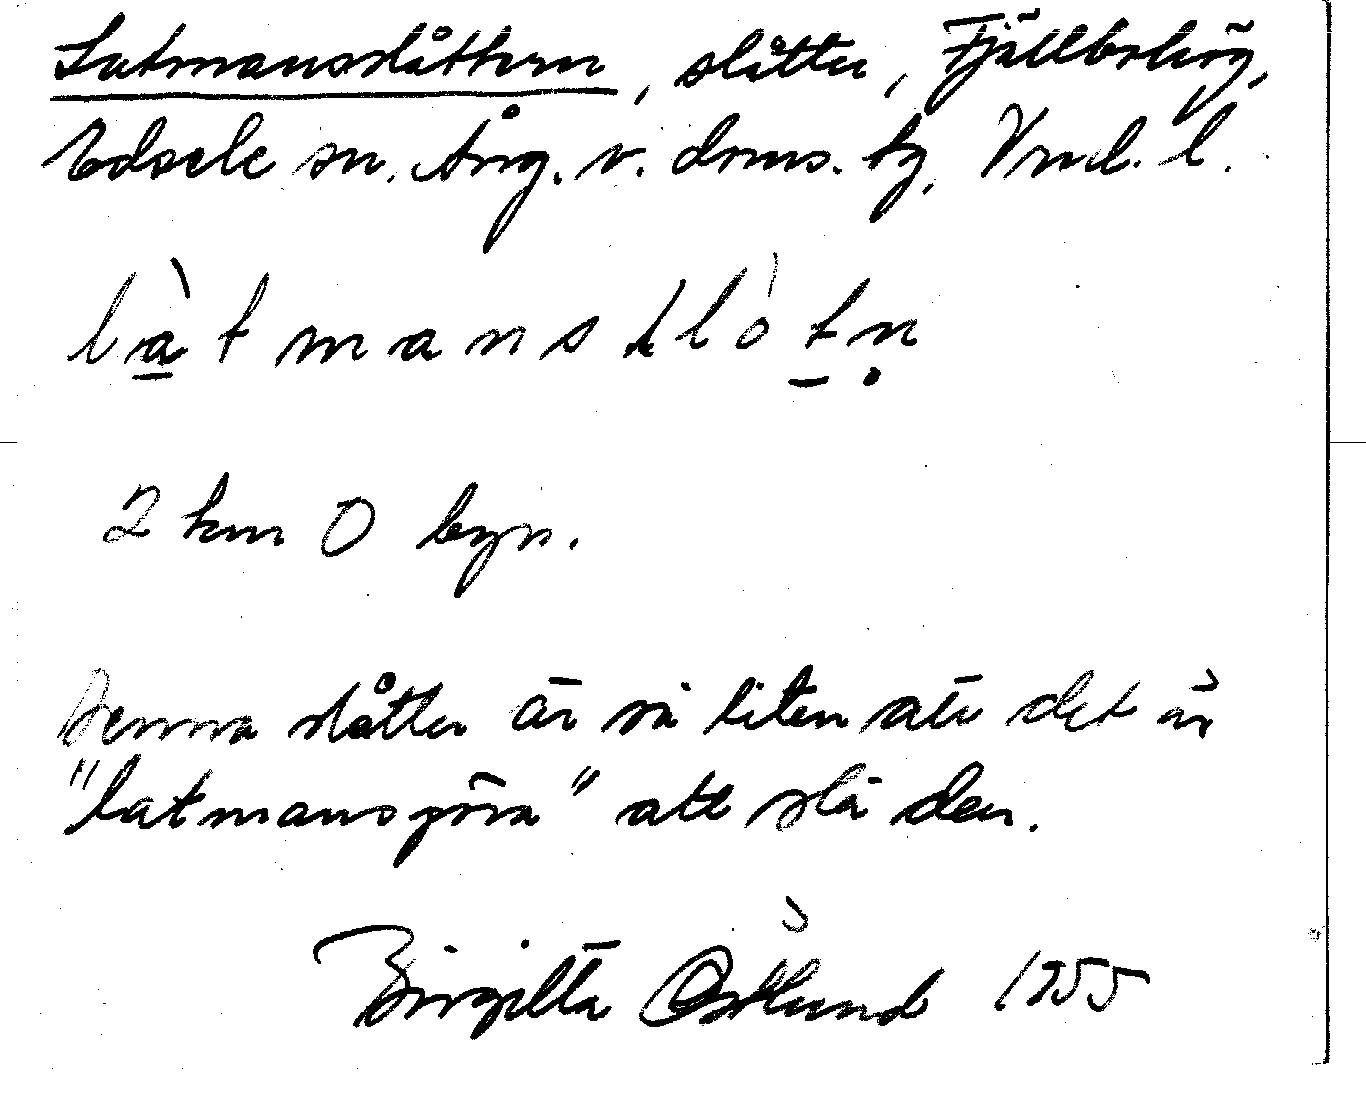 Latmansslåttern, slåtter, Fjällbohög,
Edsele sn. Ång. v. doms. tg. Vml. l.
làtmanstlòtn
2 km O byn.
Denna slåtter är så liten att det är
"latmansgöra" att slå den.
Birgitta Östlund 1955